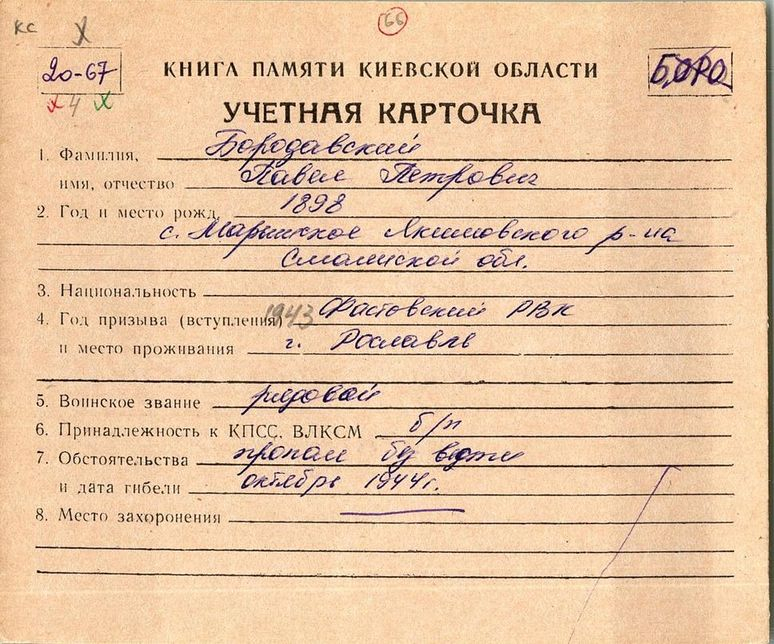 КС X
66
20-67
КНИГА ПАМЯТИ КИЕВСКОЙ ОБЛАСТИ
БОРО
х 4 х
УЧЕТНАЯ КАРТОЧКА
1. Фамилия, Бородавский
имя, отчество Павел Петрович
2. Год и место рожд. 1898
с. Марьинское Якимовского р-на
Смолинской обл.
3. Национальность
4. Год призыва (вступления) 1943 Фастовский РВК
и место проживания г. Рославль
5. Воинское звание рядовой
6. Принадлежность к КПСС, ВЛКСМ б/п
7. Обстоятельства пропал без вести
и дата гибели октябрь 1944г.
8. Место захоронения